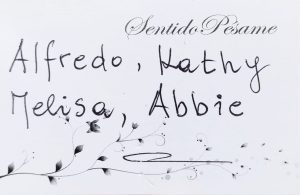 Sentido Pésame
Alfredo, Kathy
Melisa, Abbie